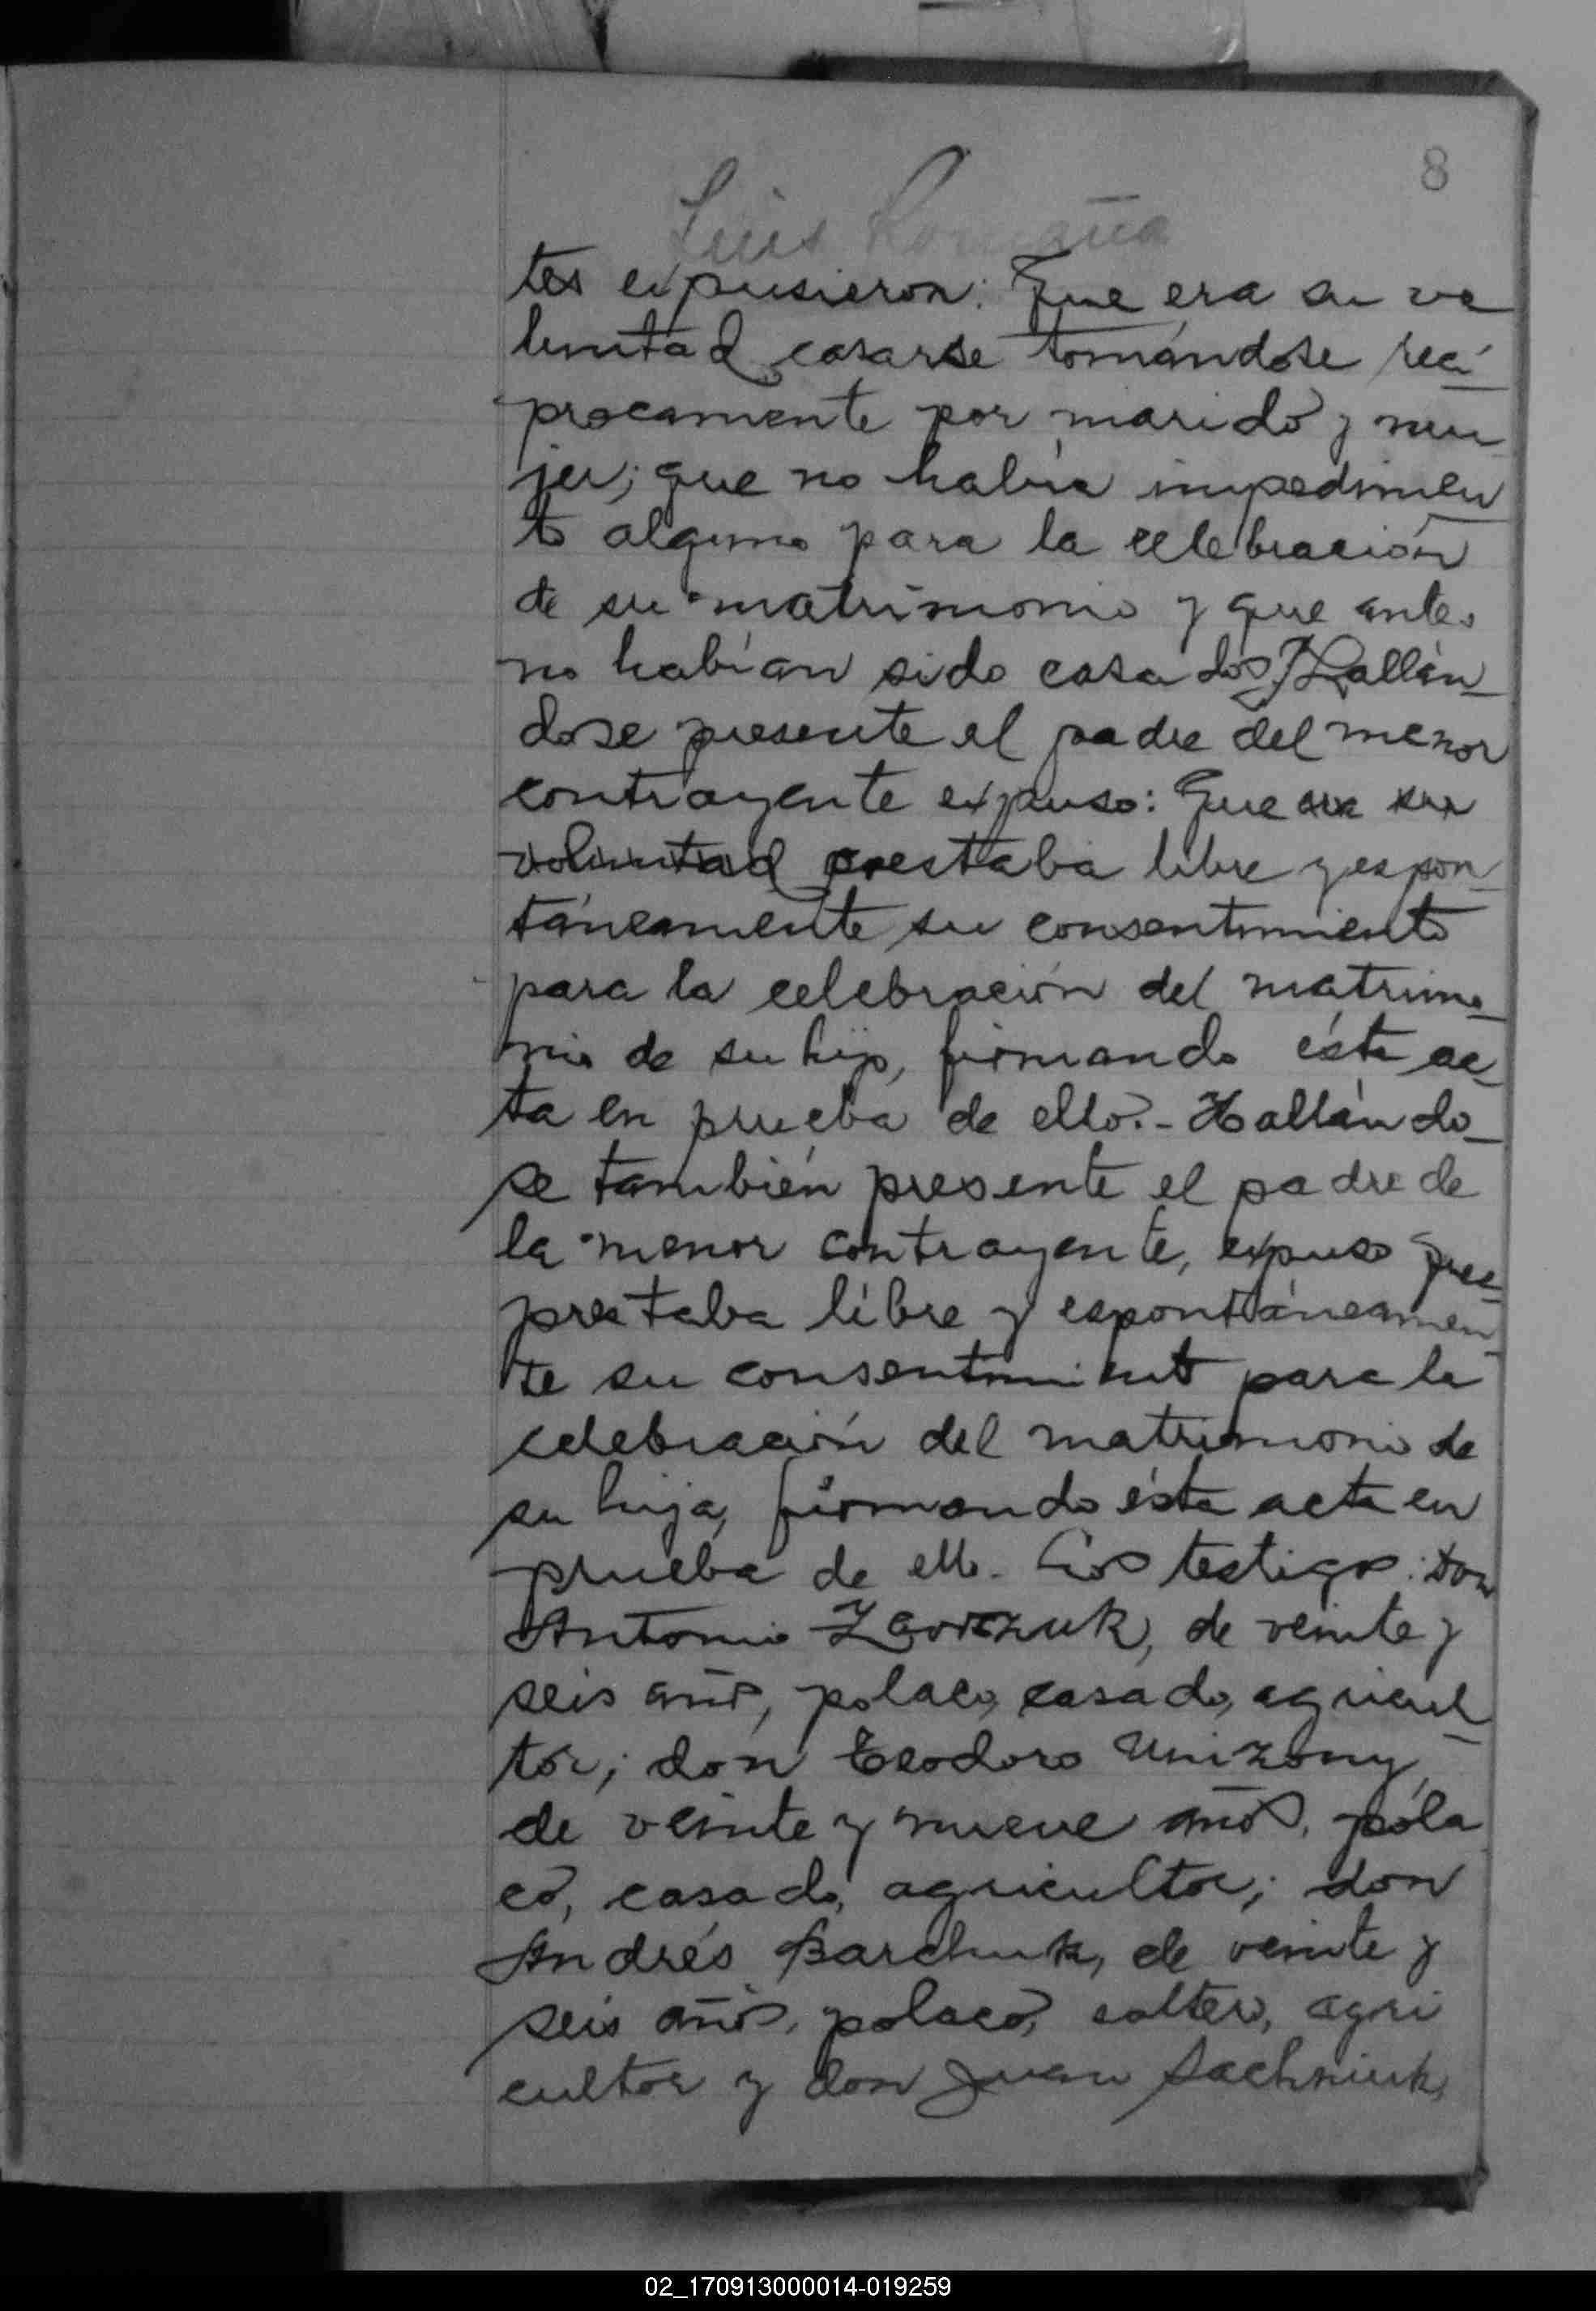 8
Luis Romaña
tes expusieron: Que era su vo
luntad casarse tomándose recí
procamente por marido y mu
jer; que no había impedimen
to alguno para la celebración
de su matrimonio y que antes
no habían sido casados. Hallán
dose presente el padre del menor
contrayente expuso: Que era su
voluntad prestaba libre y espon
táneamente su consentimiento
para la celebración del matrimo
nio de su hijo, firmando ésta ac
ta en prueba de ello.- Hallándo
se también presente el padre de
la menor contrayente, expuso que
prestaba libre y espontáneamen
te su consentimiento para la
celebración del matrimonio de
su hija, firmando ésta acta en
prueba de ello. Los testigos: don
Antonio, de veinte y
seis años, polaco, casado, agricul
tor; don Teodoro
de veinte y nueve años, pola
co, casado, agricultor; don
Andrés Barchuk, de veinte y
seis años, polaco, soltero, agri
cultor y don Juan Sachniuk,
02_170913000014-019259